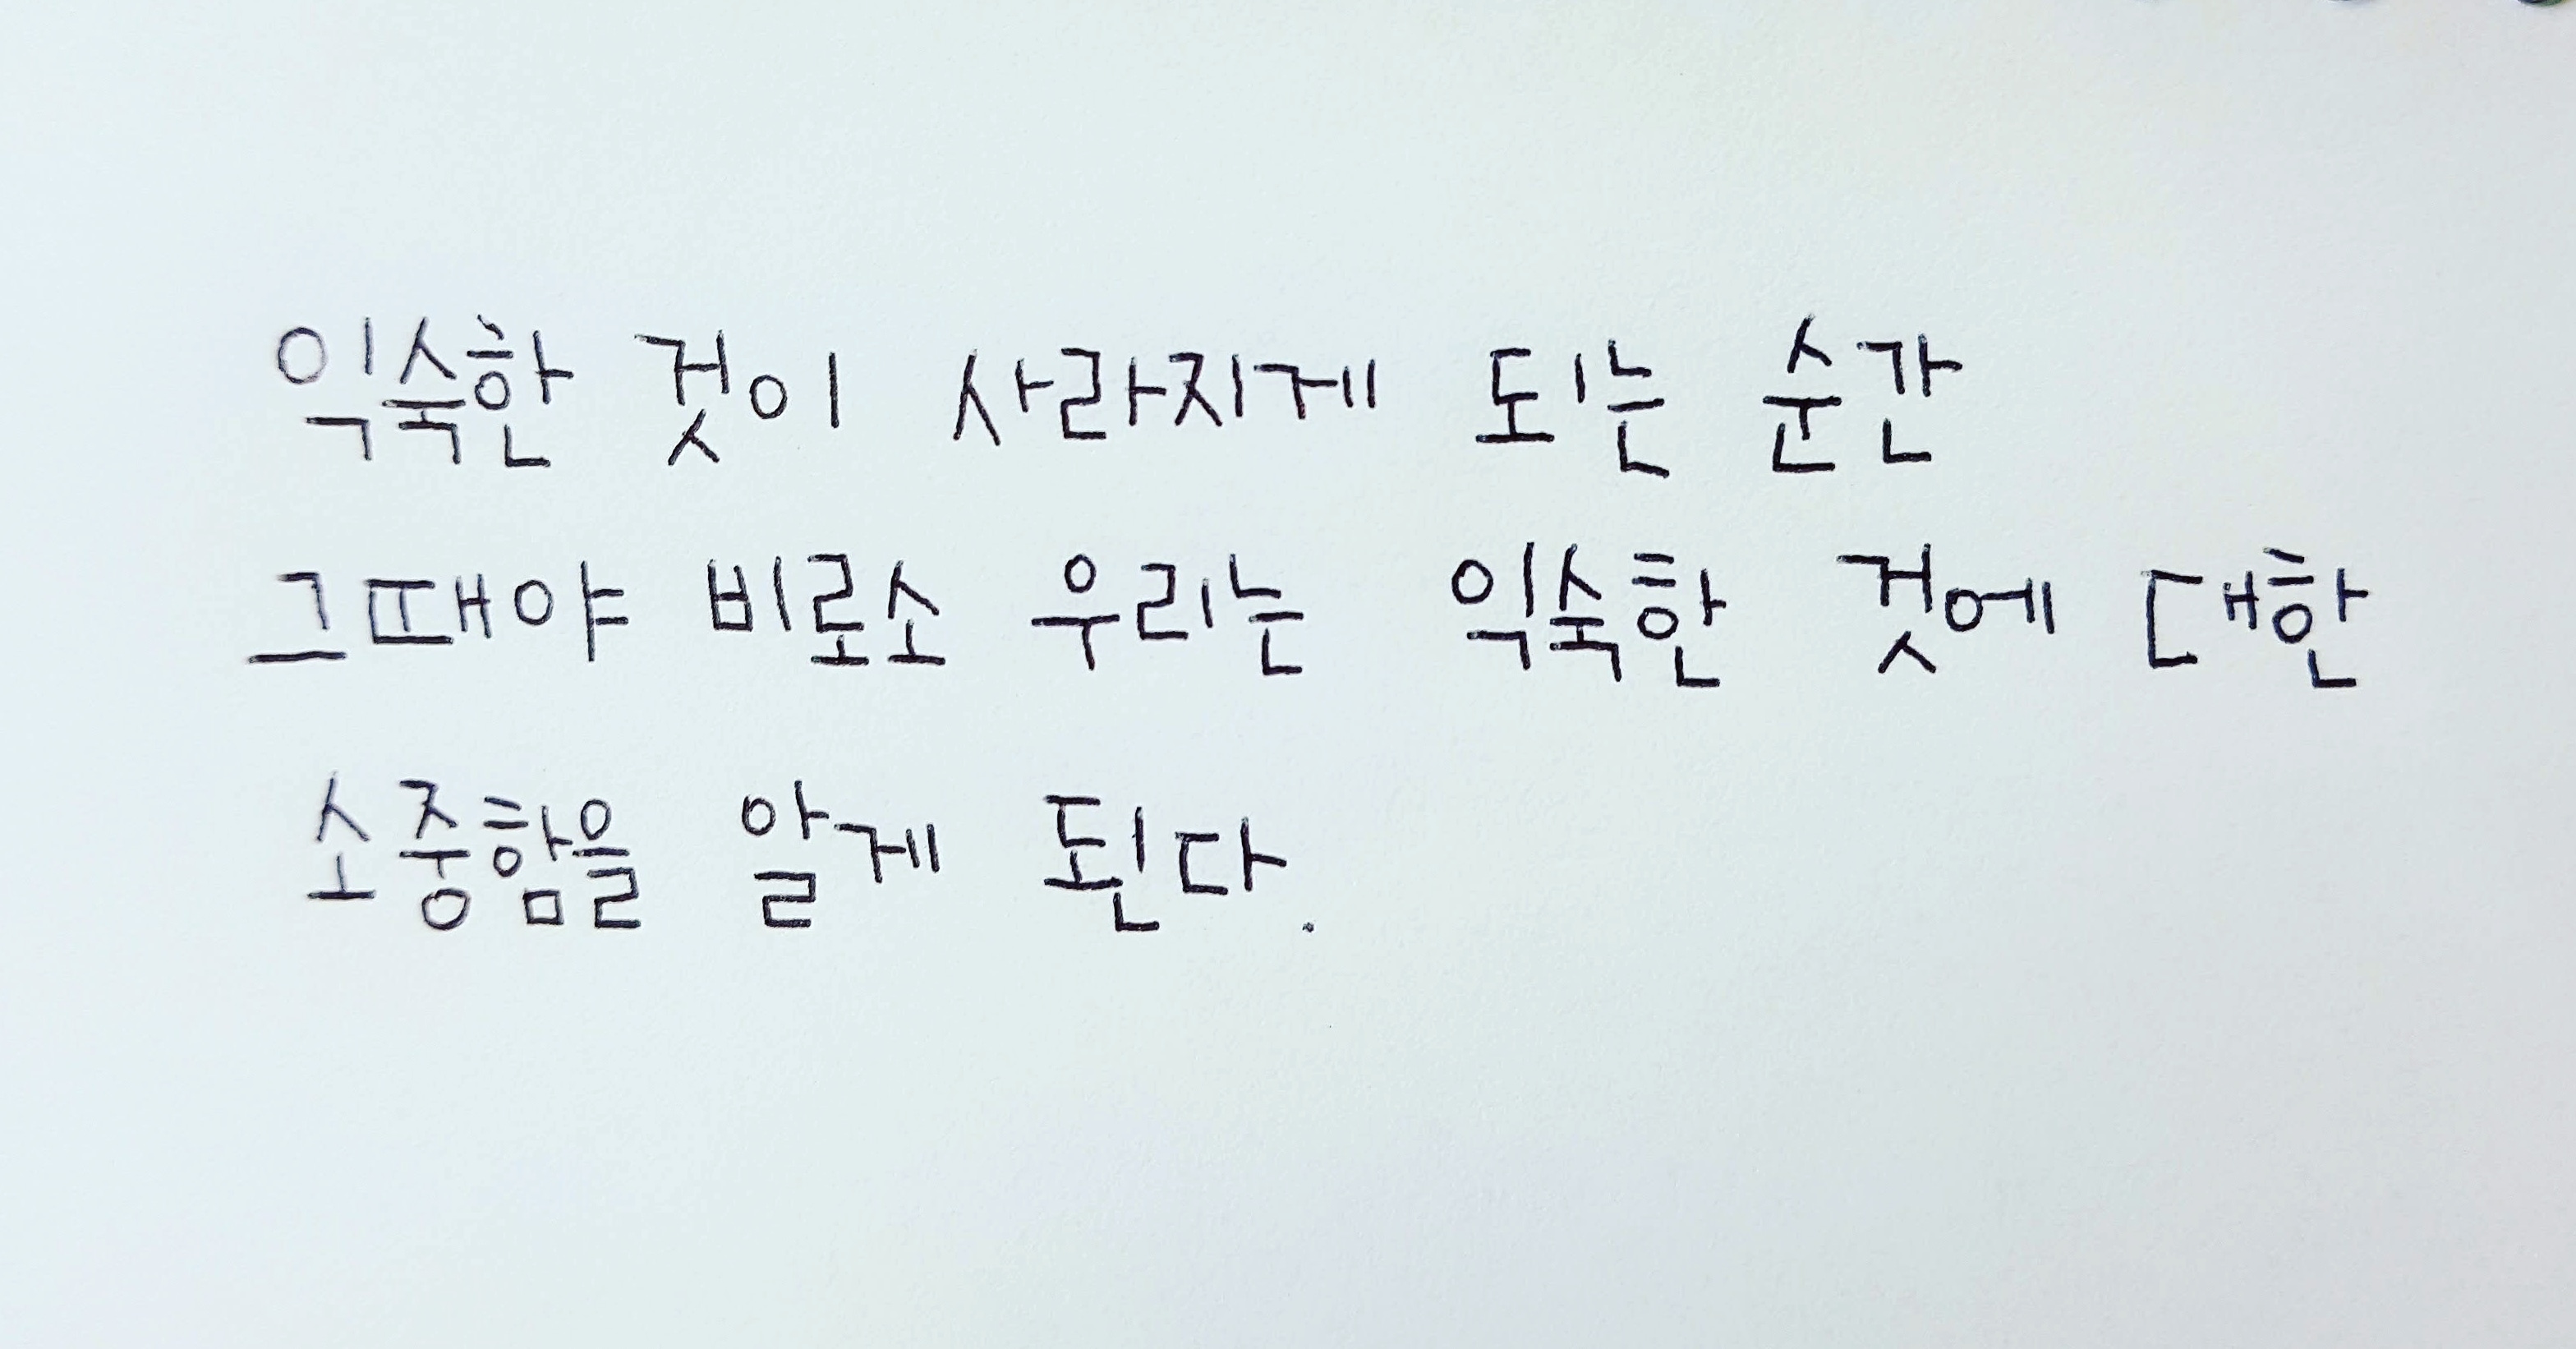 익숙한 것이 사라지게 되는 순간
그때야 비로소 우리는 익숙한 것에 대한
소중함을 알게 된다.